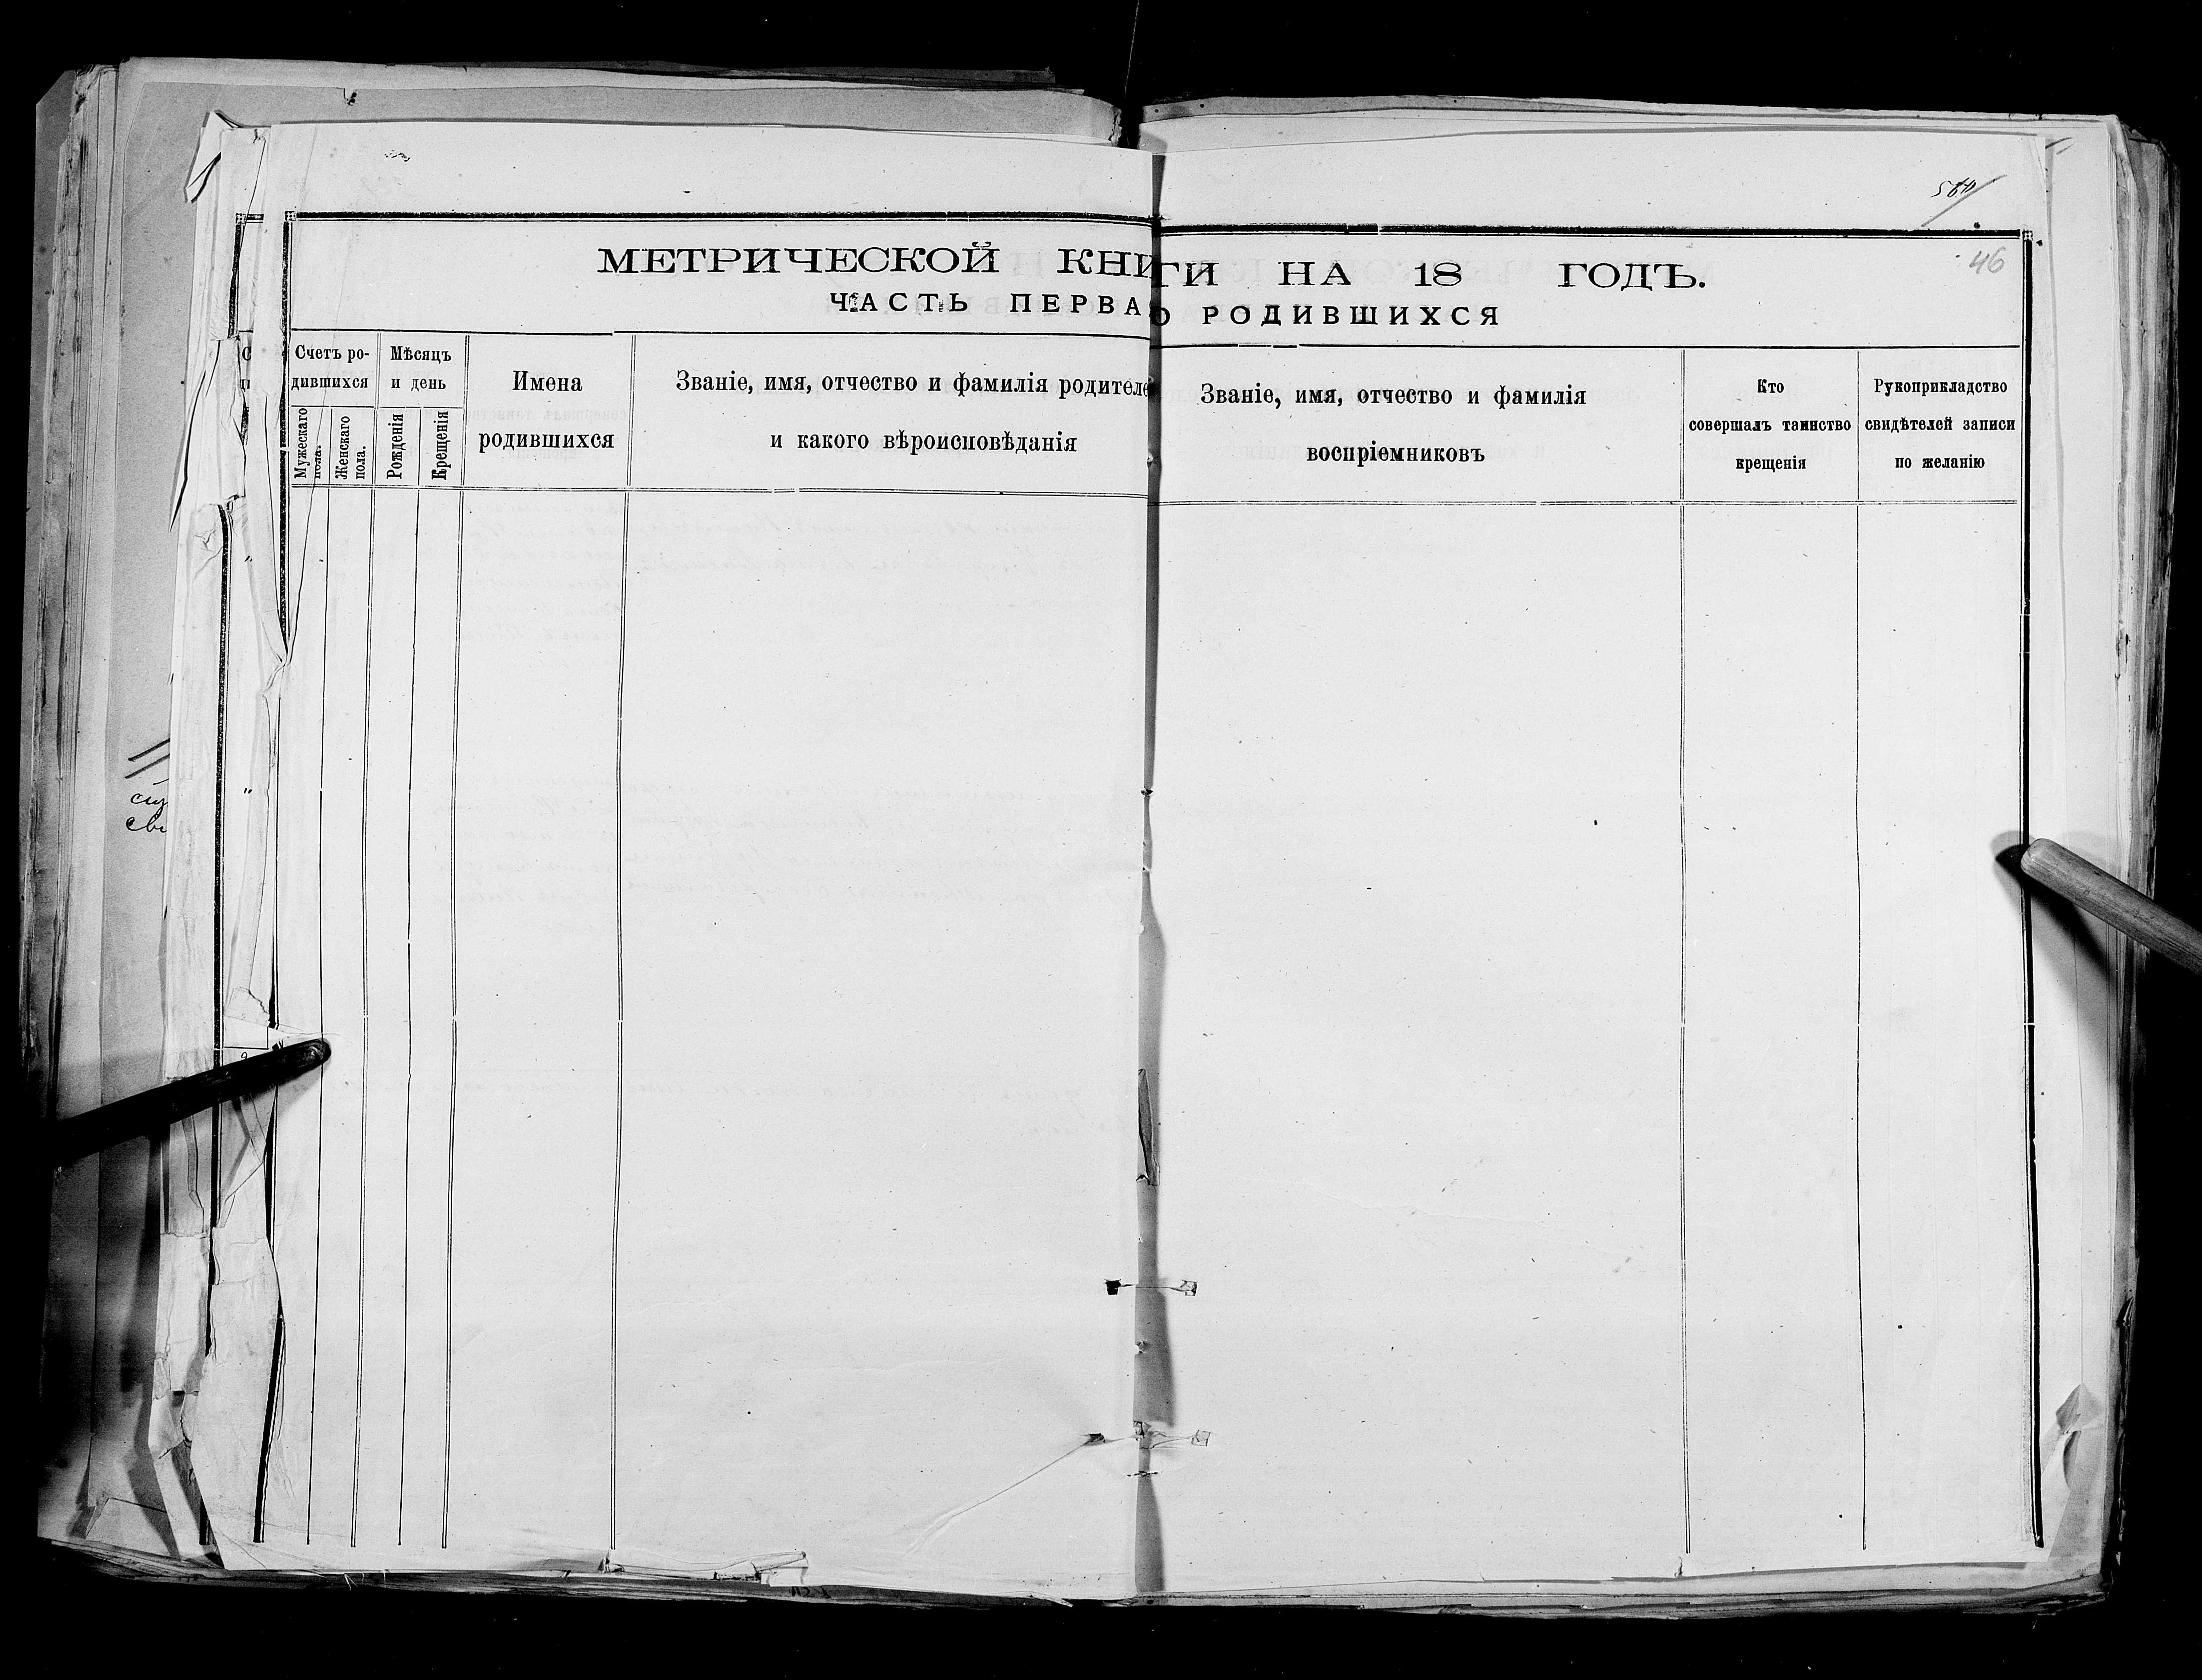 46
МЕТРИЧЕСКОЙ КНИГИ НА 18 ГОДЪ.
ЧАСТЬ ПЕРВА О РОДИВШИХСЯ
Счетъ ро-
дившихся
Мужескаго
пола.
Женскаго
пола.
Мѣсяцъ
и день
Рожденія
Крещенія
Имена
родившихся
Званіе, имя, отчество и фамилія родителе
и какого вѣроисповѣданія
Званіе, имя, отчество и фамилія
воспріемниковъ
Кто
совершалъ таинство
крещенія
Рукоприкладство
свидѣтелей записи
по желанію